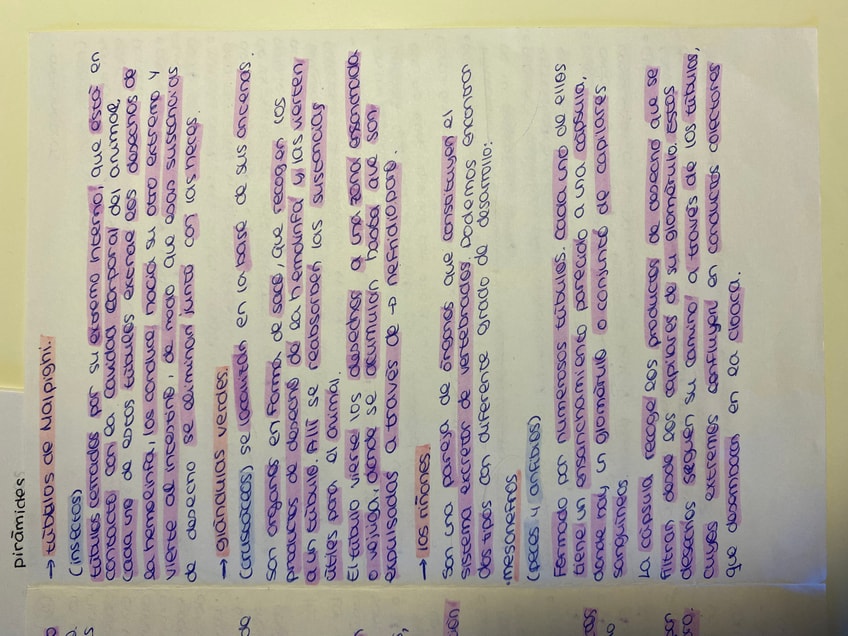 pirámides
→ túbulos de Malpighi.
(insectos)
túbulos cerrados por su extremo interno, que está en
contacto con la cavidad corporal del animal.
Cada uno de estos túbulos extrae los desechos de
la hemolinfa, los conduce hacia su otro extremo y
vierte al intestino, de modo que esas sustancias
de desecho se eliminan junto con las heces.
→ glándulas verdes.
(crustáceos) se localizan en la base de sus antenas.
son órganos en forma de saco, que recogen los
productos de desecho de la hemolinfa y las vierten
a un túbulo. Allí se reabsorben las sustancias
útiles para el animal.
El túbulo vierte los desechos a una zona ensanchada
o vejiga, donde se acumulan hasta que son
expulsadas a través de → nefridioporo.
→ los riñones
son una pareja de órganos que constituyen el
sistema excretor de vertebrados. Podemos encontrar
dos tipos con diferente grado de desarrollo:
·mesonefros
(peces y anfibios)
Formado por numerosos túbulos. Cada uno de ellos
tiene un ensanchamiento parecido a una cápsula,
donde hay un glomérulo o conjunto de capilares
sanguíneos
La cápsula recoge los productos de desecho que se
filtran desde los capilares de su glomérulo. Estos
desechos siguen su camino a través de los túbulos,
cuyos extremos confluyen en conductos colectores
que desembocan en la cloaca.